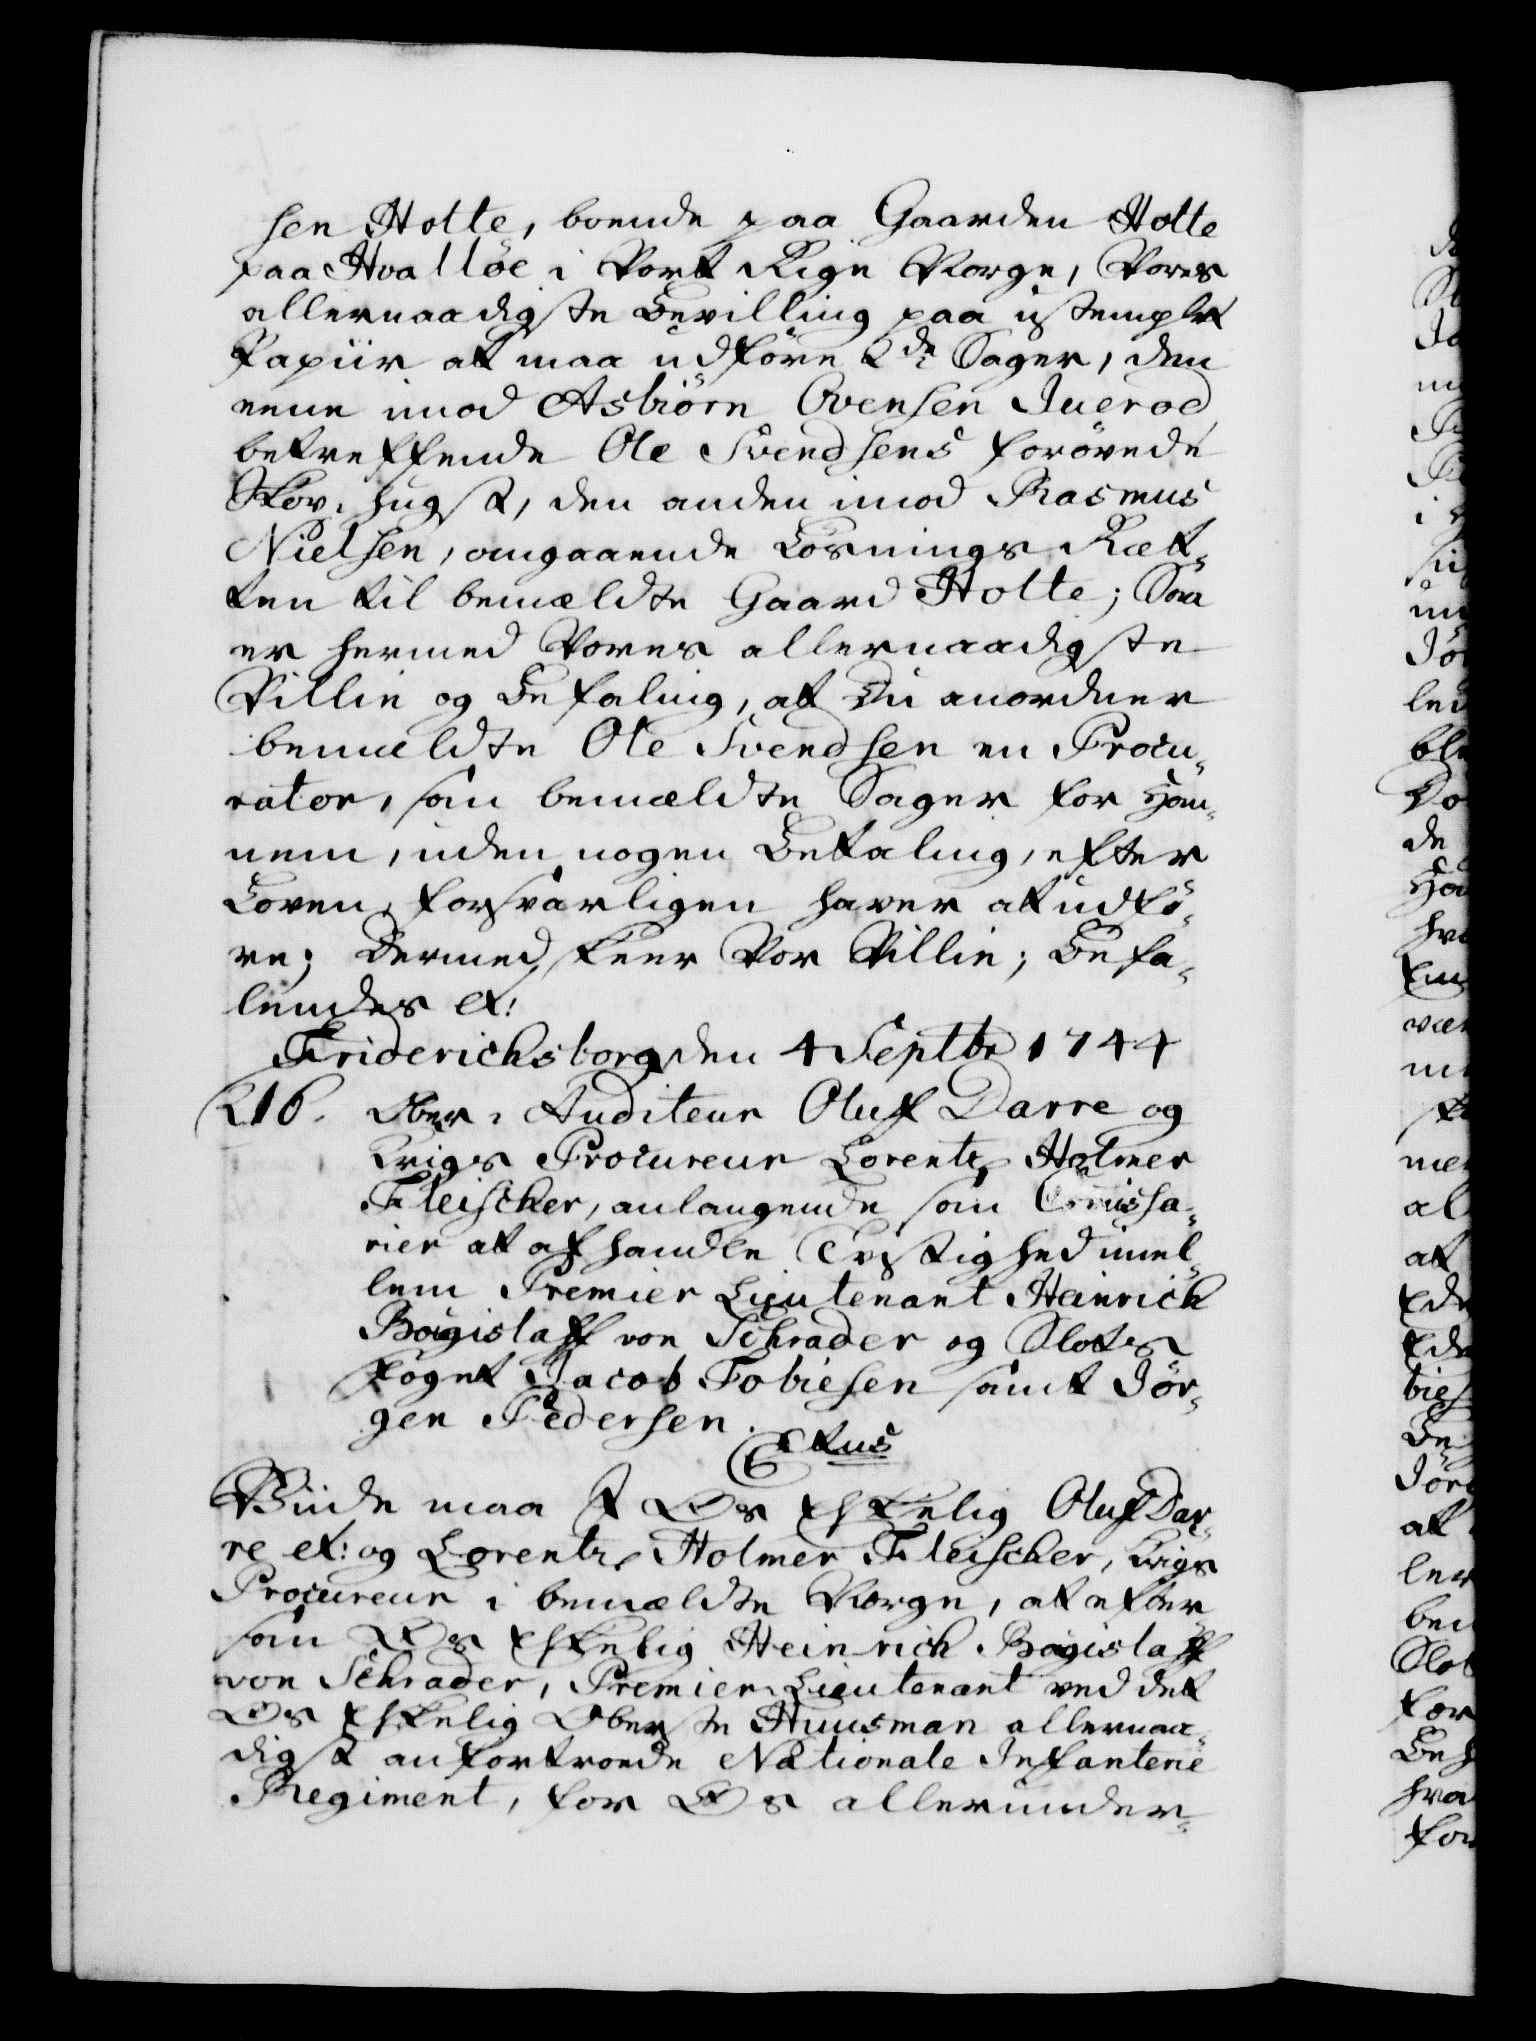 sen Holte, boende paa Gaarden Holte
paa Hvalløe i Vort Rige Norge, Vores
allernaadigste Bevilling paa ustemplet
Papiir at maa udføre 2de Sager, den
eene imod Asbiørn Ovensen Juerod
betreffende Ole Svendsens forøvede
Skov-Hugst, den anden imod Rasmus
Nielsen, angaaende Løsnings Ræt-
ten til bemældte Gaard Holte; Saa
er hermed Vores allernaadigste
Villie og Befaling, at Du anordner
bemældte Ole Svendsen en Procu-
rator, som bemældte Sager for Han-
nem, uden nogen Betaling, efter
Loven, forsvarligen haver at udfø-
re; Dermed skeer Vor Villie; Befa-
lendes etc:
Friderichsborg den 4 Septbr 1744
216. Ober-Auditeur Oluf Darre og
Krigs Procureur Lorentz Holmer
Fleischer, anlangende som Com̅issa-
rier at afhandle Tvistighed imel-
lem Premier Lieutenant Heinrich
Bogislaff von Schrader og Slots
Foget Jacob Tobiesen samt Jør-
gen Pedersen.
C6tus
Viide maa I Os Elskelig Oluf Dar-
re etc: og Lorentz Holmer Fleischer, Krigs
Procureur i bemældte Norge, at efter-
som Os Elskelig Heinrich Bogislaff
von Schrader, Premier-Lieutenant ved det
Os Elskelig Oberste Huusman allernaa-
digst anfortroede Nationale Infanterie
Regiment, for Os allerunder-